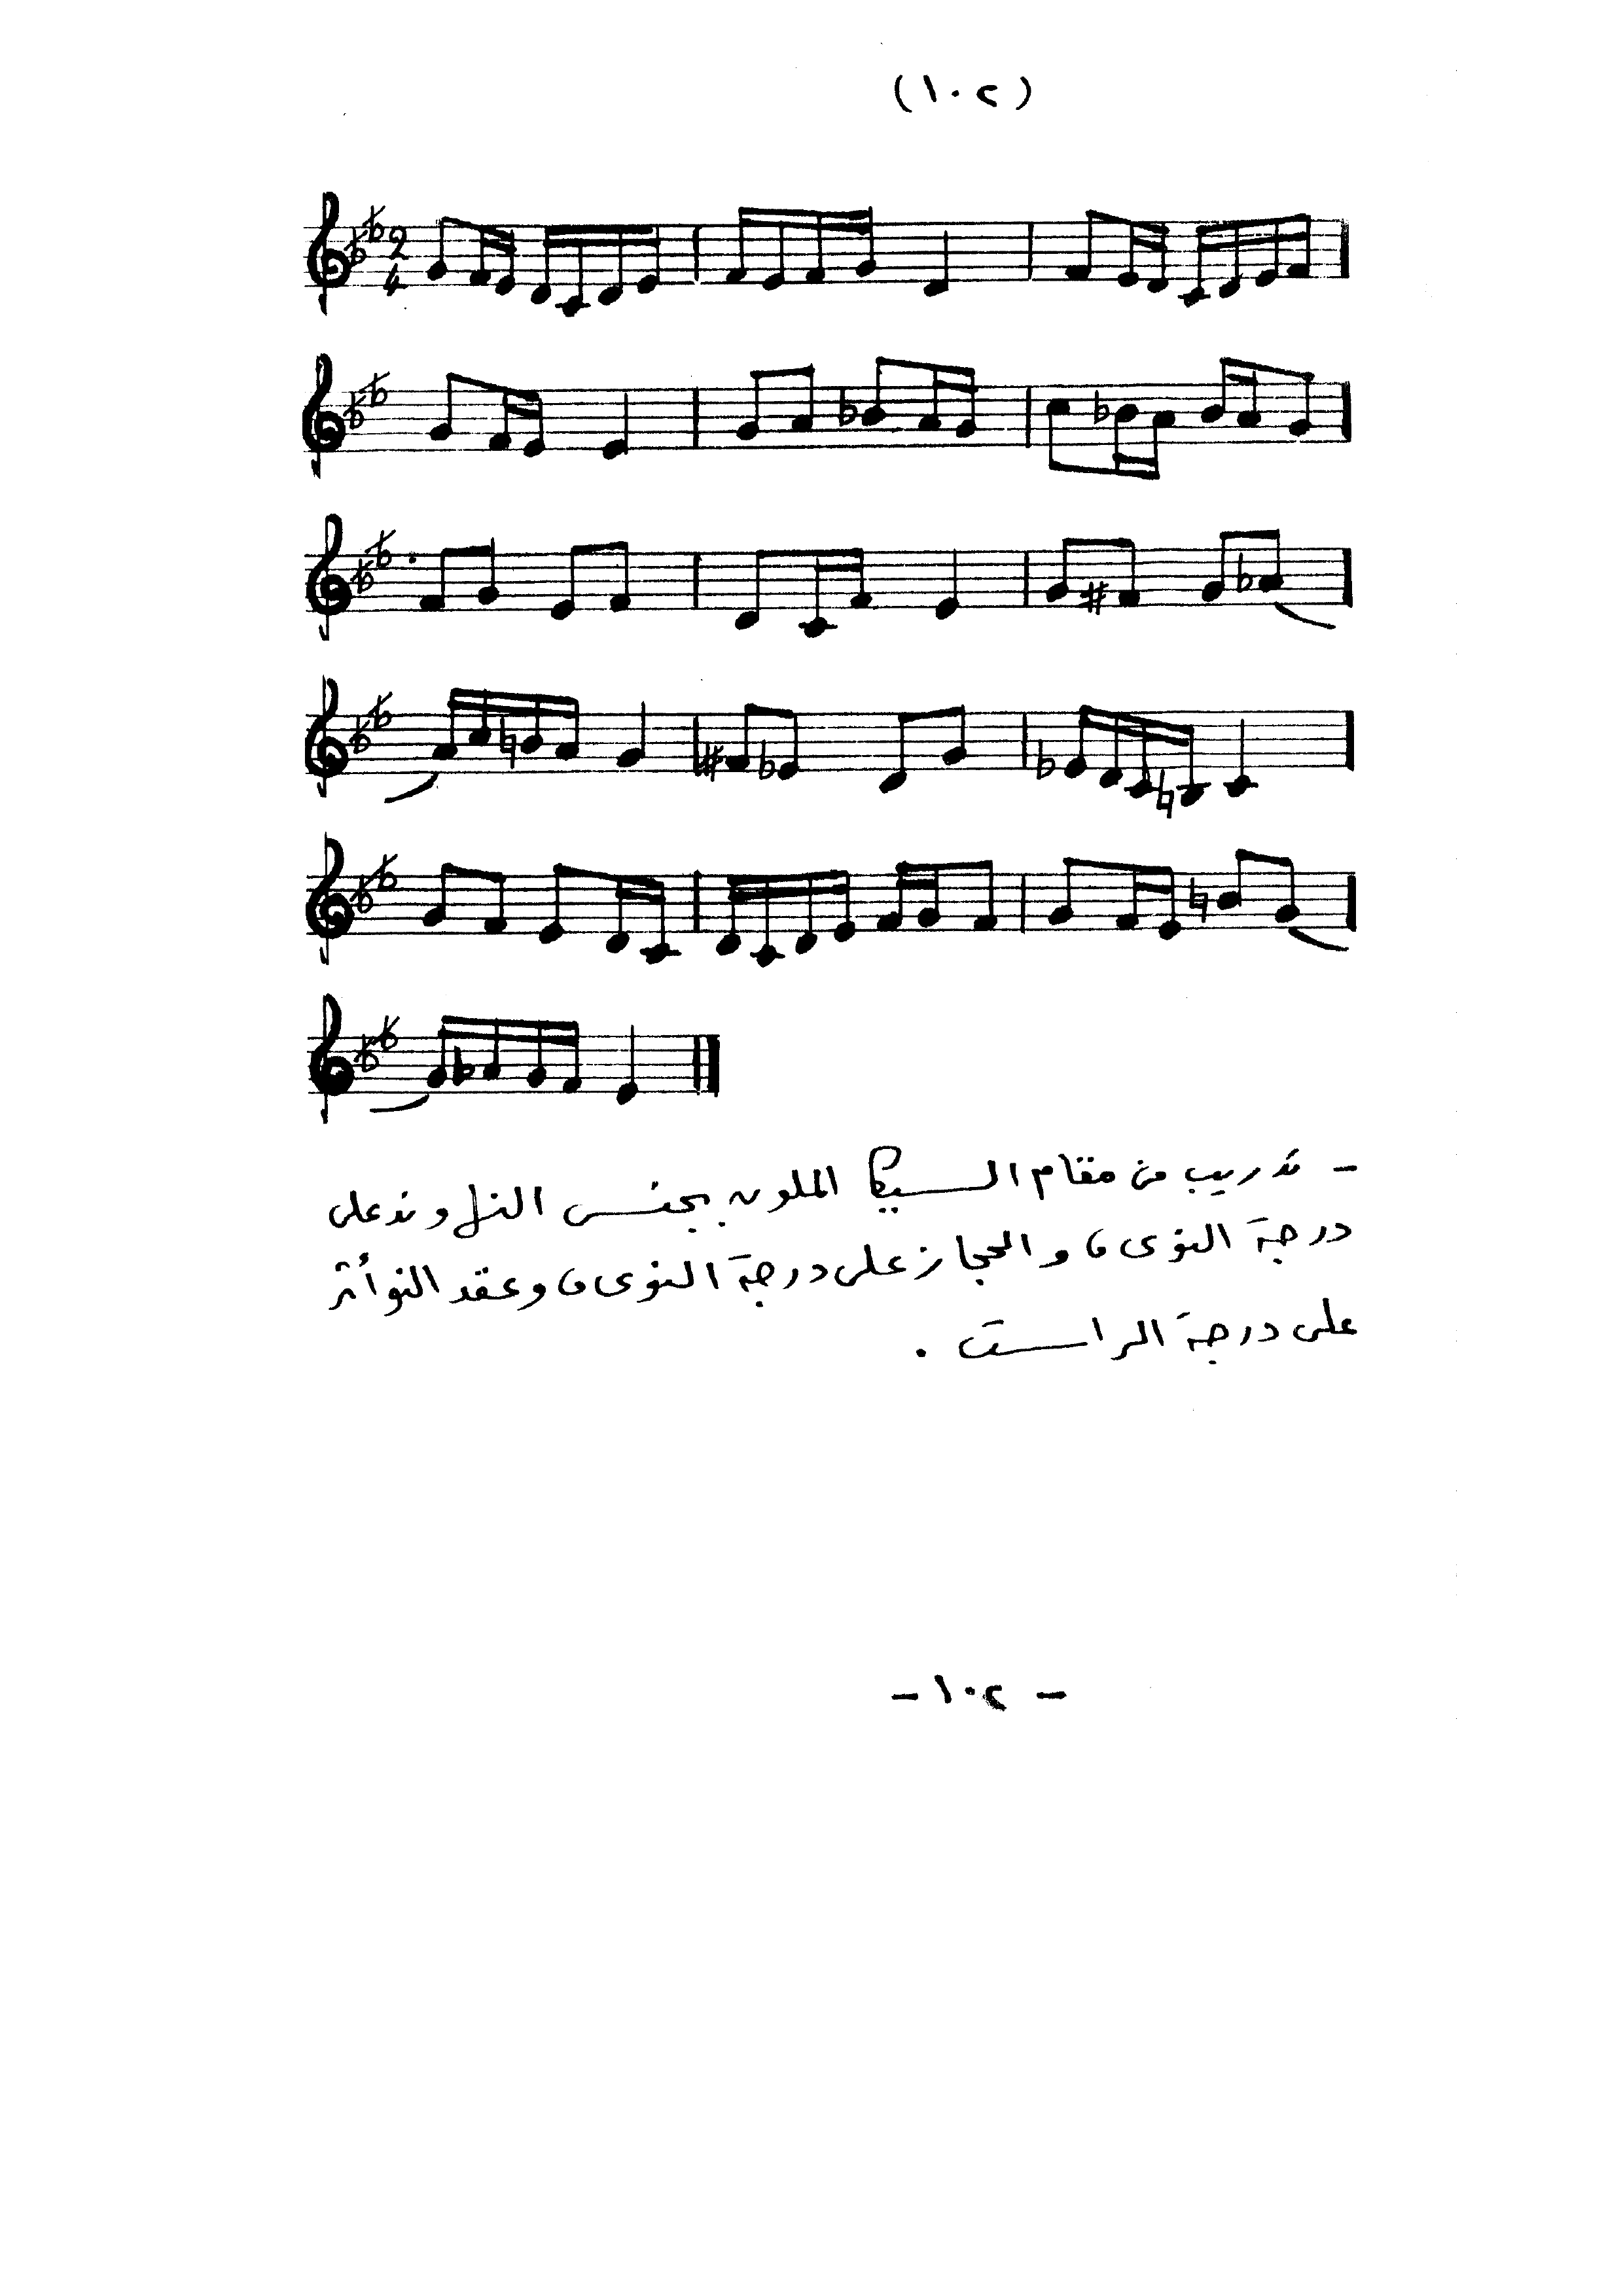 (١٠٢)
2
4
- تدريب من مقام السيكا الملون بجنس النهاوند على
درجة النوى ، والحجاز على درجة النوى ، وعقد النوأثر
على درجة الراست .
- ١٠٢ -